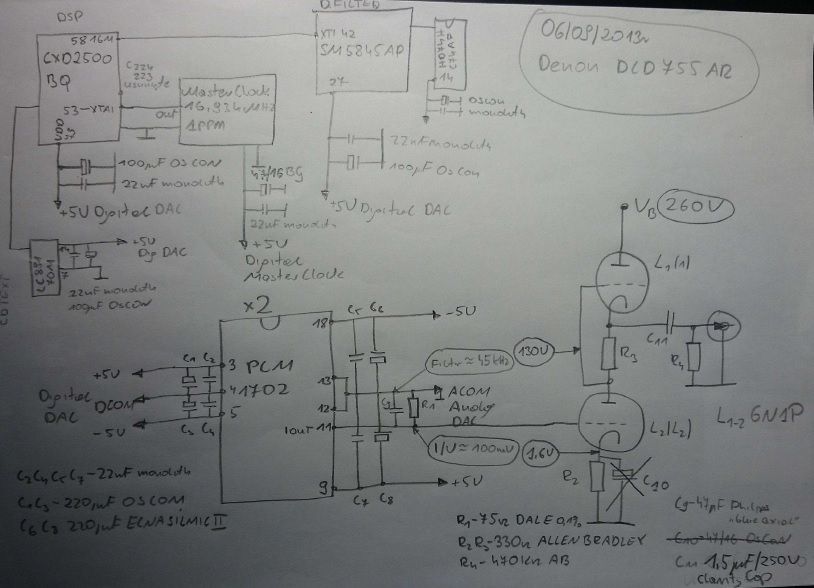 DSP
5816M
CXD2500
BQ
53-XTAI
C224
223
usunięte
out
Master Clock
16,934MHz
1PPM
100µF OSCON
22nF monolith
+5V Digital DAC
47/16 BG
22nF monolith
+5V
Digital
Master Clock
D.FILTER
XTI 42
SM5845AP
27
22nF monolith
100µF Oscon
+5V Digital DAC
14
oscon
monolith
06/09/2013r
Denon DCD 755 AR
+5V
Dig DAC
22nF monolith
100µF OSCON
x2
PCM
1702
18
3
4
5
13
12
Iout 11
9
C1 C2
C3 C4
C5 C6
C7 C8
+5V
Digital DCOM
DAC
-5V
-5V
+5V
Filtr ≈ 45kHz
ACOM
Analog
DAC
R1
I/U ≈ 100mV
130V
1,6V
VB 260V
L1(1)
C11
R3
R4
L2(L2)
R2
C10
L1-2 6N1P
C2 C4 C5 C7 - 22nF monolith
C1 C3 - 220µF OSCOM
C6 C8 220µF ELNA SILMIC II
R1 - 75Ω DALE 0,1%
R2 R3 - 330Ω ALLEN BRADLEY
R4 - 470kΩ AB
C9 - 47pF Philips
"blue axial"
C10 - 47/16 OSCON
C11 1,5µF/250V
Clarity Cap